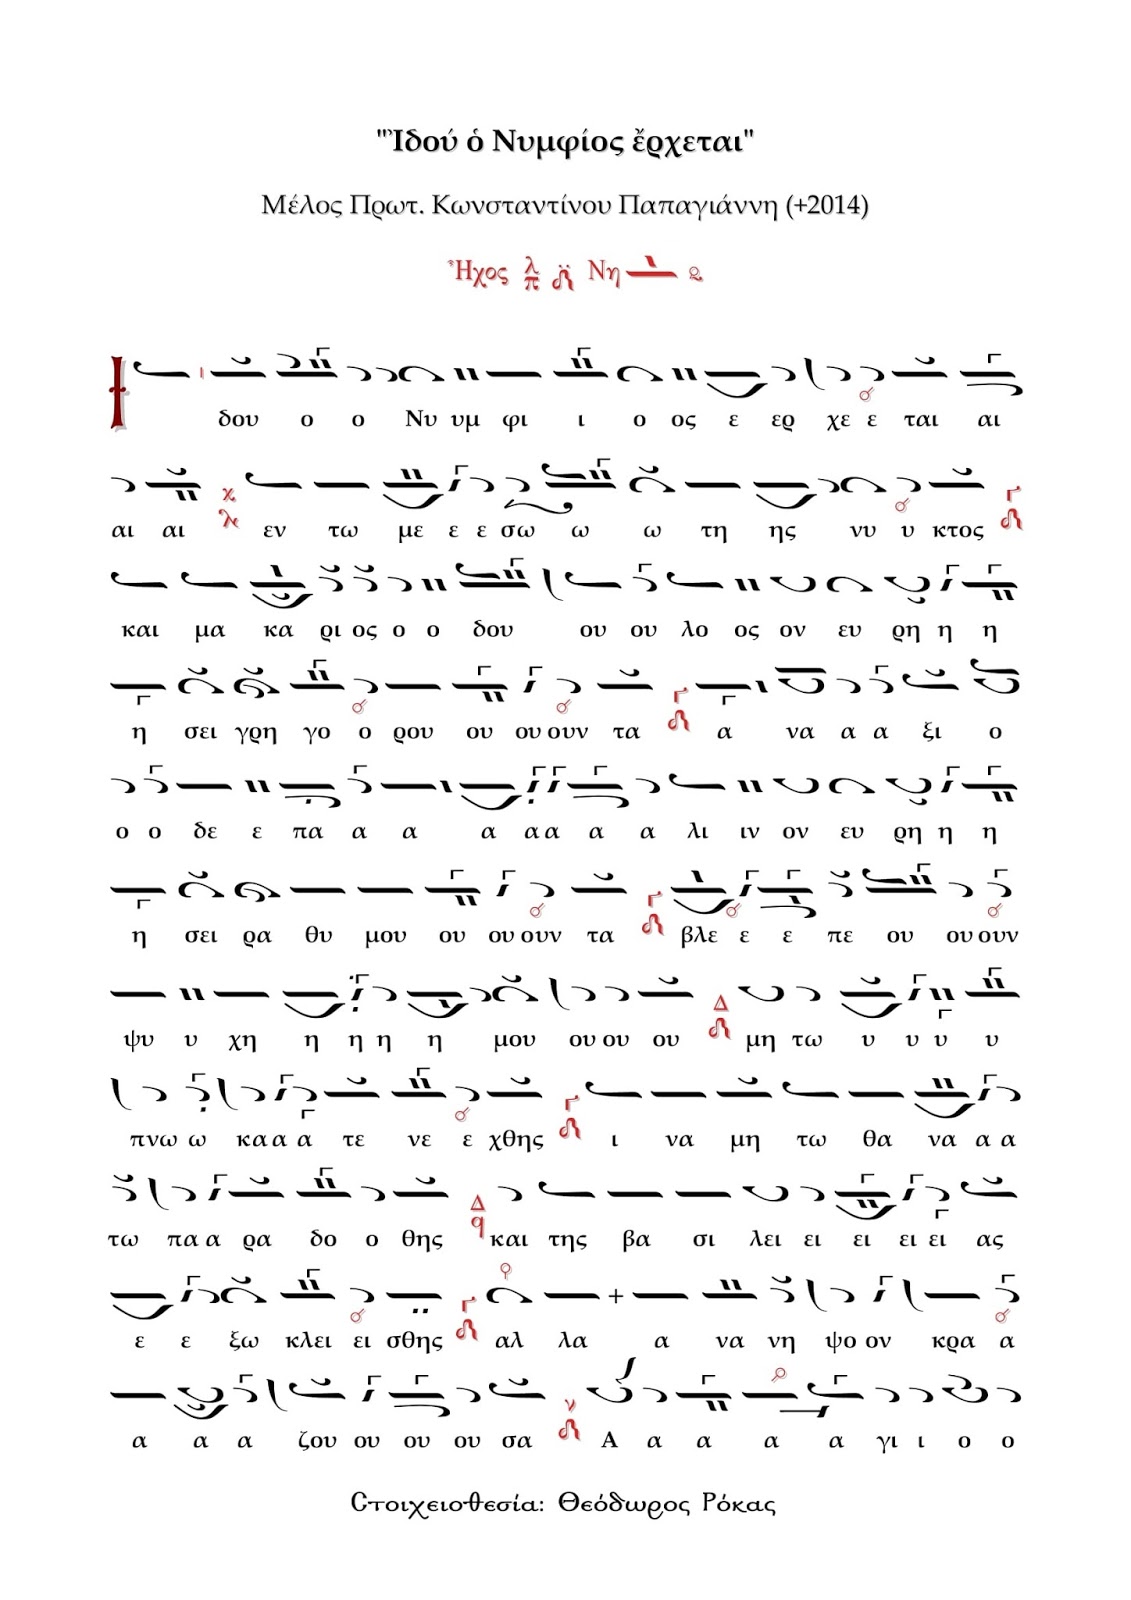 "Ἰδού ὁ Νυμφίος ἔρχεται"
Μέλος Πρωτ. Κωνσταντίνου Παπαγιάννη (+2014)
Ἦχος λ π Νη
Ι δου ο ο Νυ υμ φι ι ο ος ε ερ χε ε ται αι
αι αι εν τω με ε ε σω ω ω τη ης νυ υ κτος
και μα κα ρι ος ο ο δου ου ου λο ος ον ευ ρη η η
η σει γρη γο ο ρου ου ου ουν τα α να α α ξι ο
ο ο δε ε πα α α α α α α α λι ιν ον ευ ρη η η
η σει ρα θυ μου ου ου ουν τα βλε ε ε πε ου ου ουν
ψυ υ χη η η η η μου ου ου ου μη τω υ υ υ υ
πνω ω κα α α τε νε ε χθης ι να μη τω θα να α α
τω πα α ρα δο ο θης και της βα σι λει ει ει ει ει ας
ε ε ξω κλει ει σθης αλ λα α να νη ψο ον κρα α
α α α ζου ου ου ου σα Α α α α α γι ι ο ο
Στοιχειοθεσία: Θεόδωρος Ρόκας